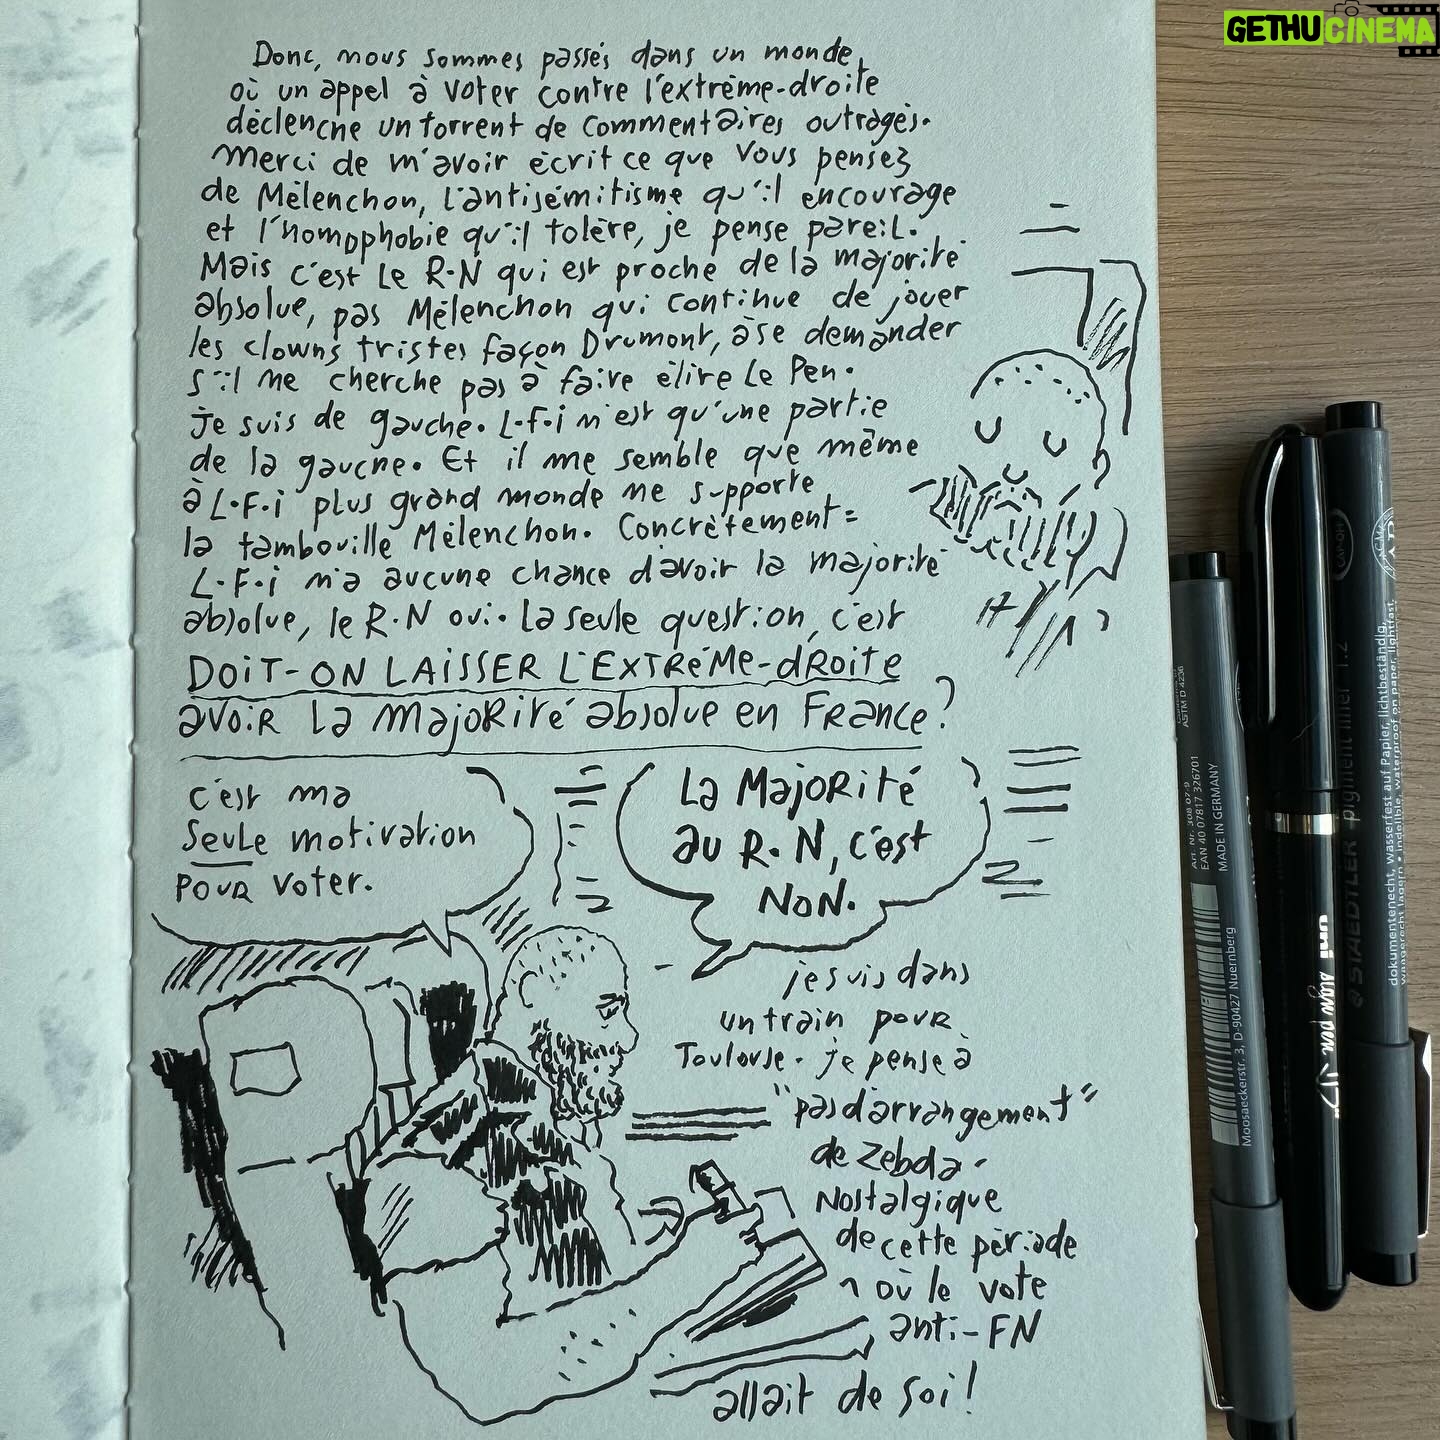 GETHU CINEMA
Donc, nous sommes passés dans un monde
où un appel à voter contre l'extrême-droite
déclenche un torrent de commentaires outragés.
Merci de m'avoir écrit ce que vous pensez
de Mélenchon, l'antisémitisme qu'il encourage
et l'homophobie qu'il tolère, je pense pareil.
Mais c'est le R.N qui est proche de la majorité
absolue, pas Mélenchon qui continue de jouer
les clowns tristes façon Drumont, à se demander
s'il ne cherche pas à faire élire Le Pen.
je suis de gauche. L.F.i n'est qu'une partie
de la gauche. Et il me semble que même
à L.F.i plus grand monde ne supporte
la tambouille Mélenchon. Concrètement =
L.F.i n'a aucune chance d'avoir la majorité
absolue, le R.N oui. La seule question, c'est
DOIT-ON LAISSER L'EXTRÊME-DROITE
AVOIR LA MAJORITÉ absolue en FRANCE?
c'est ma
seule motivation
POUR voter.
La MAJORITÉ
au R.N, c'est
NON.
je suis dans
un train pour
Toulouse. je pense à
"pas d'arrangement"
de Zebda.
Nostalgique
de cette période
où le vote
anti-FN
allait de soi!
STAEDTLER pigment liner 1.2
dokumentenecht, wasserfest auf Papier, lichtbeständig,
waagerecht lagern • indelible, waterproof on paper, lightfast,
uni sign pen
ASTM D 4236
Art. Nr. 308 07-9
EAN 40 07817 326701
MADE IN GERMANY
Moosaeckerstr. 3, D-90427 Nuernberg